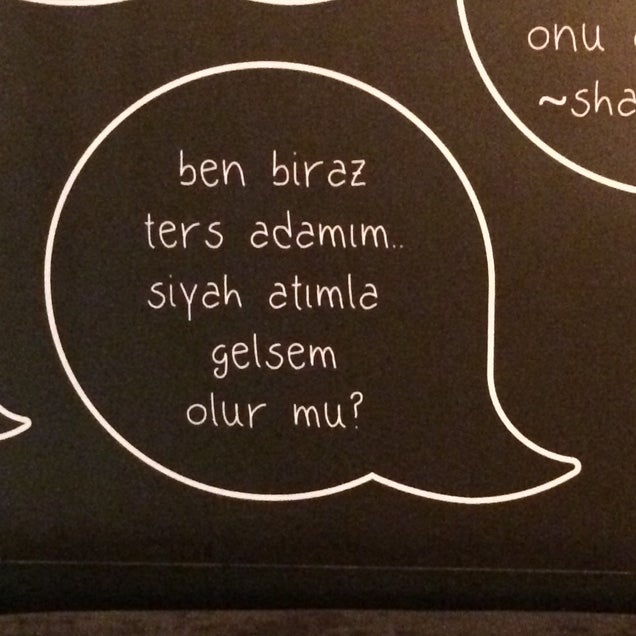 onu
~sha
ben biraz
ters adamım..
siyah atımla
gelsem
olur mu?